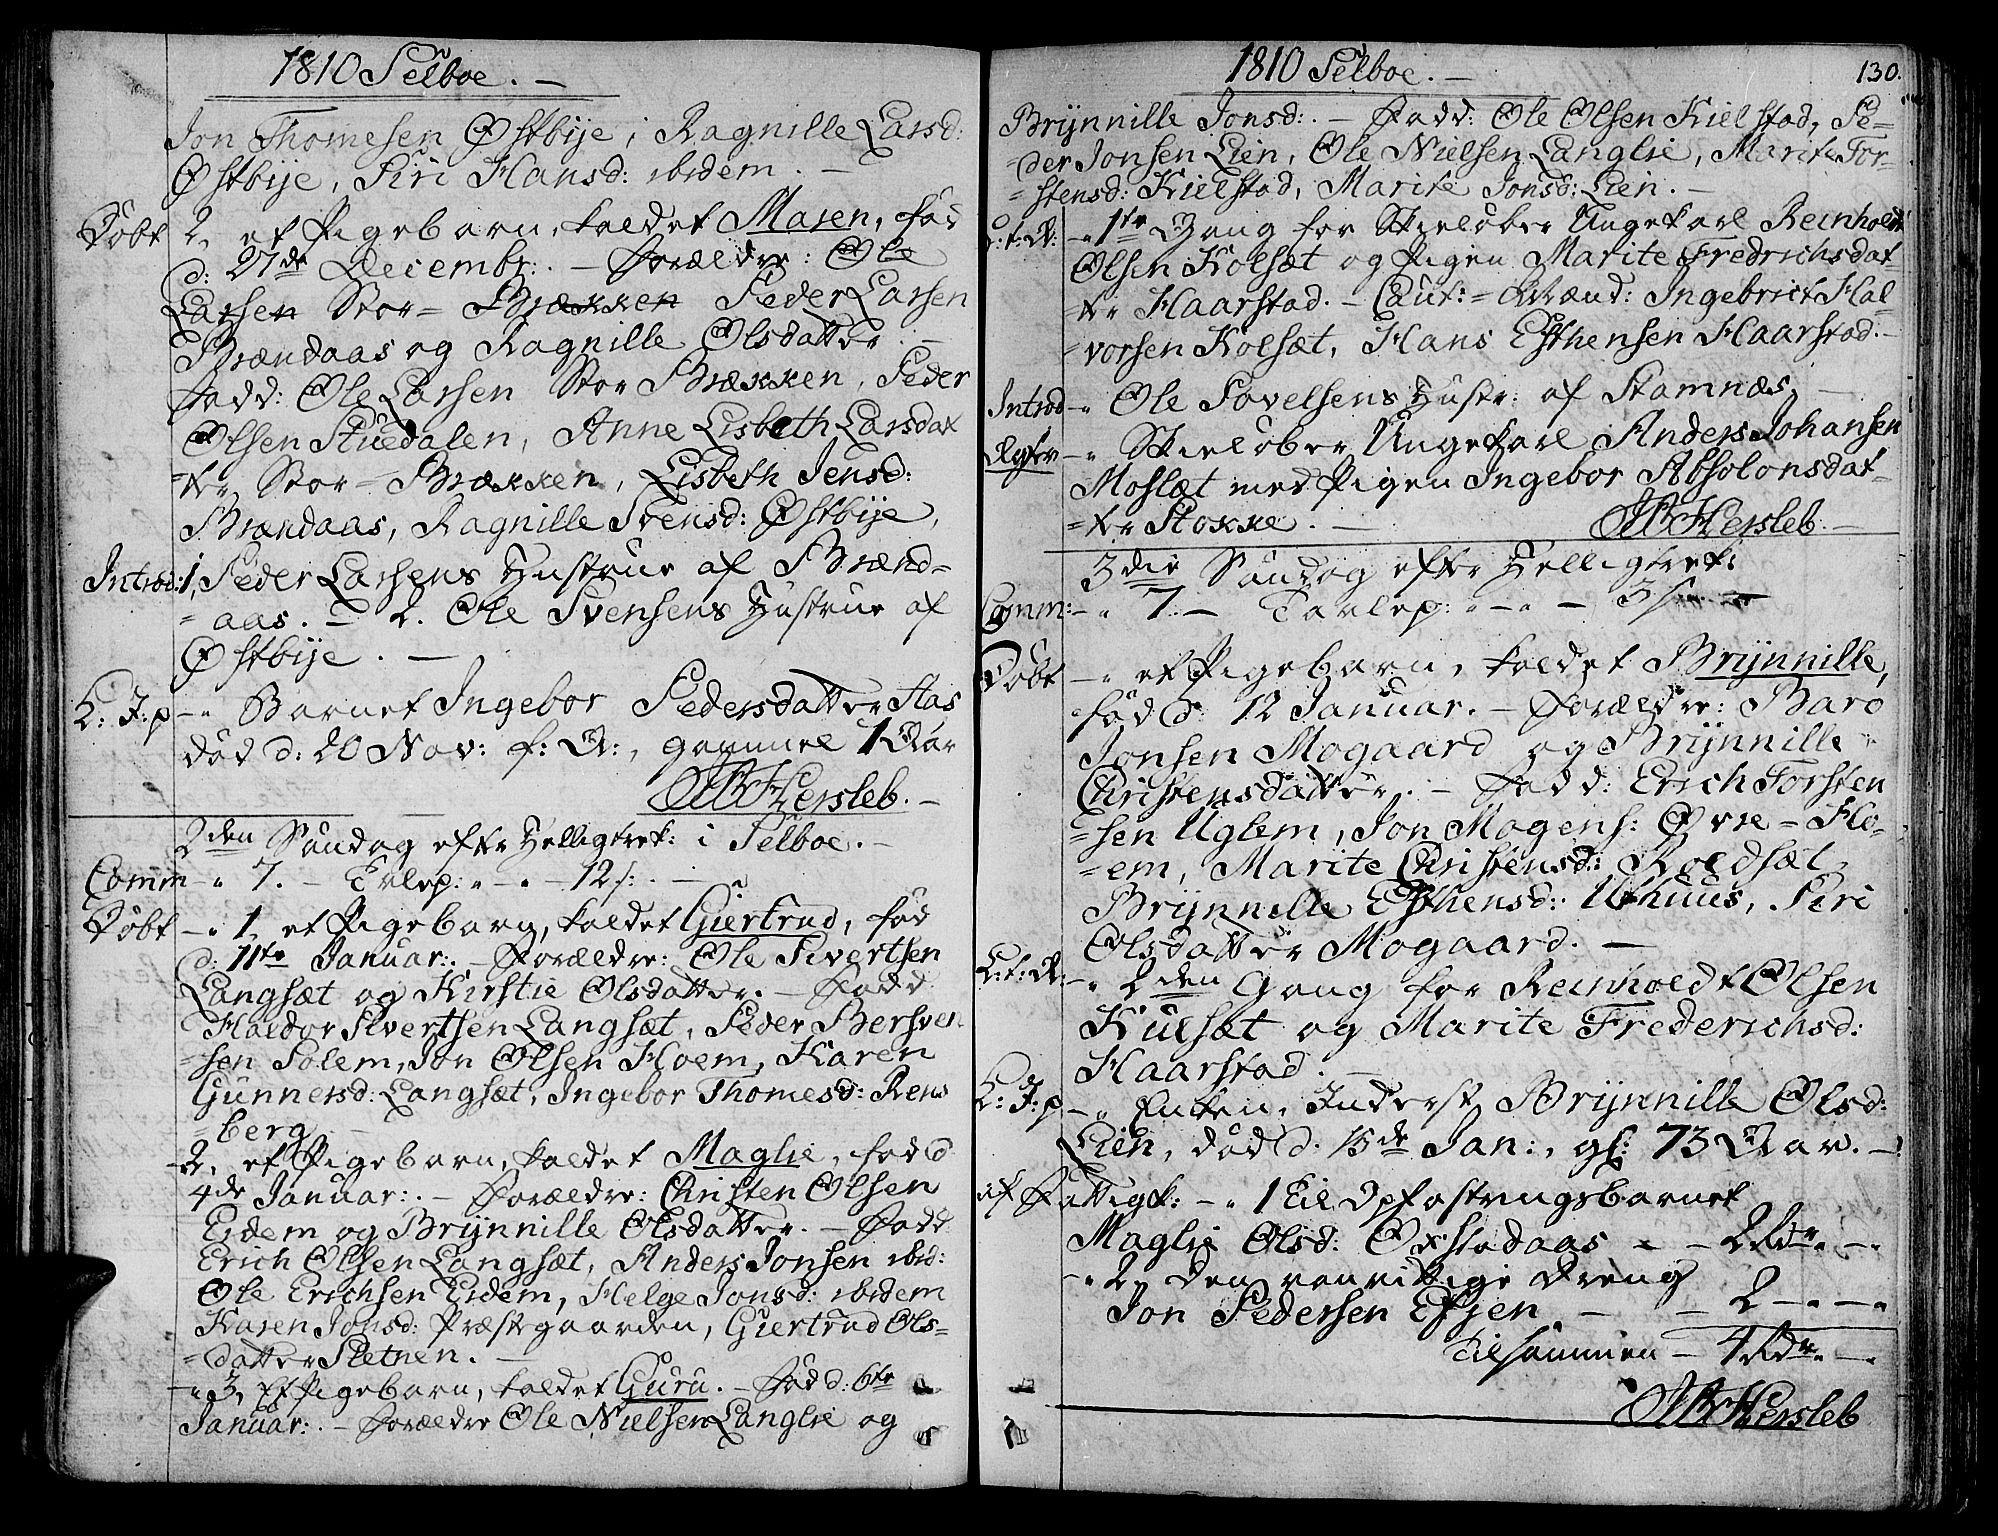 1810 Selboe. —
Jon Thomesen Østbÿe, Ragnille Larsd:
Østbÿe, Siri Hansd: ibidem. —
Døbt 2, et Pigebarn, kaldet Maren, fød
d: 27de Decembr: . — Forældre: Ole
Larsen Stor= Brækken Peder Larsen
Brændaas og Ragnille Olsdatter. —
Fadd: Ole Larsen Stor Brækken, Peder
Olsen Stuedalen, Anne Lisbeth Larsdat
=tr Stor=Brækken, Lisbeth Jensd:
Brændaas, Ragnille Svensd: Østbÿe,
Introd: 1, Peder Larsens Hustrue af Brænd=
=aas. — 2. Ole Svensens Hustrue af
Østbÿe. —
L: J: p —" Barnet Ingebor Pedersdatter Aas
død d: 20 Nov: f: A:, gammel 1 Aar
JBHersleb. —
2den Søndag efter Helligtrek: i Selboe. —
Comm —" 7. — Erlep: " — " — 12 s:
Døbt —" 1, et Pigebarn, kaldet Giertrud, fød
d: 11te Januar: . — Forældre: Ole Sivertsen
Langsæt og Kirstie Olsdatter. — Fadd
Haldor Sivertsen Langsæt, Peder Bersven
=sen Solem, Jon Olsen Hoem, Karen
Gunnersd: Langsæt, Ingebor Thomesd: Rens
=berg
— 2, et Pigebarn, kaldet Maglie, fød d
4de Januar: . — Forældre: Christen Olsen
Eidem og Brÿnnille Olsdatter. — Fadd
Erich Olsen Langsæt, Anders Jonsen ibid:
Ole Erichsen Eidem, Helge Jonsd: ibidem
Karen Jonsd: Præstegaarden, Giertrud Ols=
=datter Sletnen. —
—" 3, et Pigebarn, kaldet Guru. — fød d: 6te
Januar: . — Forældre Ole Nielsen Langlie og
1810 Selboe. —
130.
Brÿnnille Jonsd: . — Fadd: Ole Olsen Kielstad, Pe=
=der Jonsen Lien, Ole Nielsen Langlie, Marite Tor=
=stensd: Kielstad, Marite Jonsd: Lien. —
L: t: A: —" 1te Gang for Skieløber Ungekarl Reinholdt
Olsen Kolsæt og Pigen Marite Fredrichsdat=
=tr Haarstad. — Caut:=Mænd: Ingebrict Hal
=vorsen Kolsæt, Hans Esthensen Haarstad. —
Introd —" Ole Povelsens Hustr: af Stamnæs, —
Ægtev —" Skieløber Ungekarl Anders Johansen
Moslæt med Pigen Ingebor Absolonsdat=
=tr Stokke. — JBHersleb. —
3die Søndag efter Helligtrek:
Comm: —" 7 — Erlep: " — " — 3 s:
Døbt —" et Pigebarn, kaldet Brÿnnille,
fød d: 12 Januar. — Forældre: Baro
Jonsen Mogaard og Brÿnnille
Christensdatter. — Fadd: Erich Torsten
=sen Uglem, Jon Mogens: Øvre=Ho=
=em, Marite Christensd: Roldsæt
Brÿnnille Esthensd: Uthuus, Siri
Olsdatter Mogaard. —
L: t: A: —" 2den Gang for Reinholdt Olsen
Kulsæt og Marite Frederichsd:
Haarstad. —
L: J: p —" Enken, Inderst Brÿnnille Olsd:
Lien, død d. 15de Jan:, gl: 73 Aar. —
af Fattigk: —" 1 Til Opfostringsbarnet
Maglie Olsd: Øxstadaas — — 2 Rdr. —"
—" 2, Den vanvittige Dreng
Jon Pedersen Efjen — — 2 —" —"
Tilsammen — 4 Rdr. —"
JBHersleb